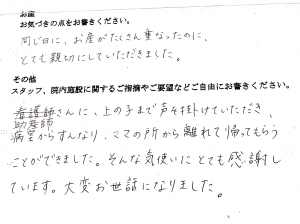 お産
お気づきの点をお書きください。
同じ日に、お産がたくさん重なったのに、
とても親切にしていただきました。
その他
スタッフ、院内施設に関するご指摘やご要望などご自由にお書きください。
看護師さんに、上の子まで声を掛けていただき、
助産師
病室からすんなり、ママの所から離れて帰ってもらう
ことができました。そんな気使いにとても感謝し
ています。大変お世話になりました。